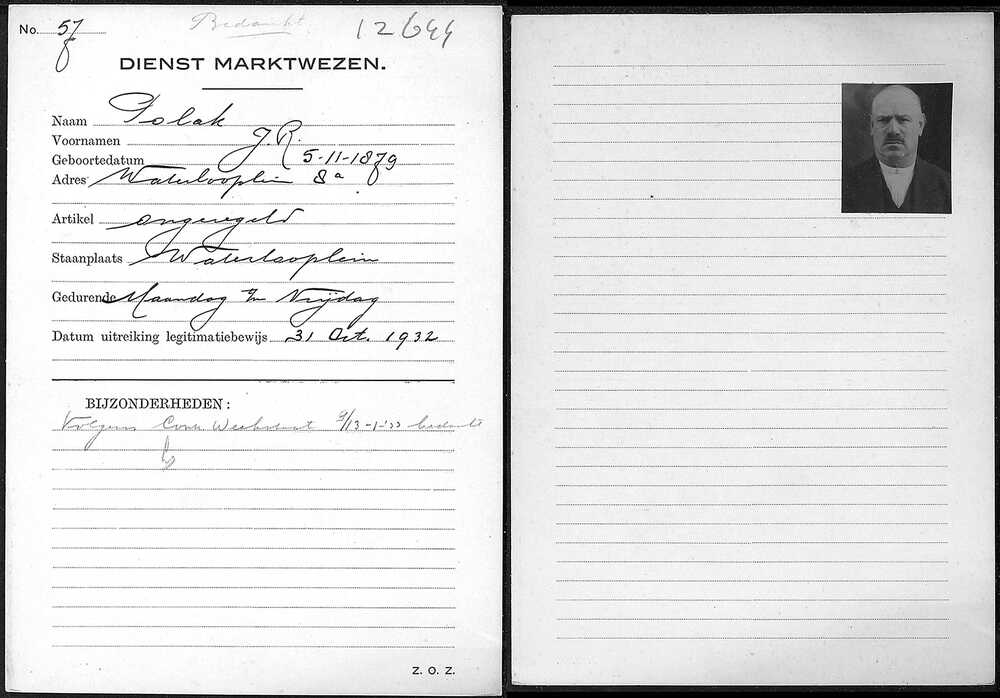 No. 57 Bedankt 12644
DIENST MARKTWEZEN.
Naam Polak
Voornamen J. R.
Geboortedatum 5-11-1879
Adres Waterlooplein 8a
Artikel ongeregeld
Staanplaats Waterlooplein
Gedurende Maandag t/m Vrijdag
Datum uitreiking legitimatiebewijs 31 Oct. 1932
BIJZONDERHEDEN:
Volgens Contr. 9/13-1-'33 bedankt
Z. O. Z.